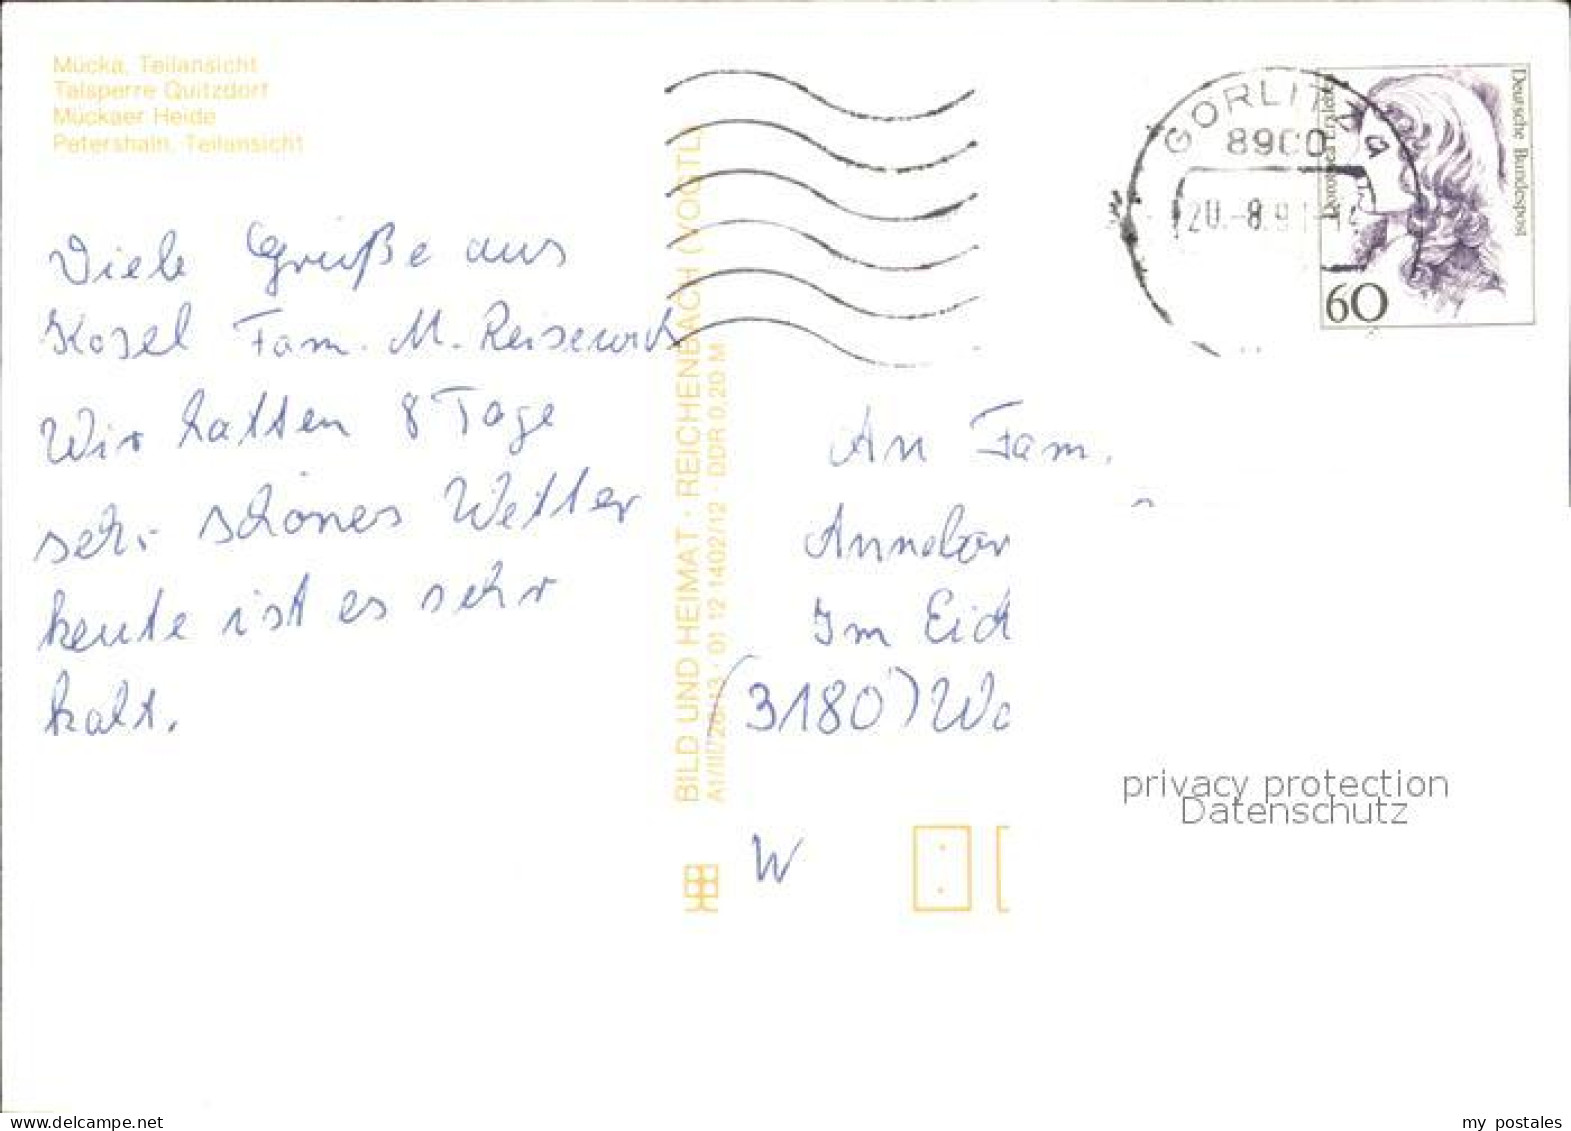 Mücka, Teilansicht
Talsperre Quitzdorf
Mückaer Heide
Petershain, Teilansicht
Viele Grüße aus
Kosel Fam. M.
Wir hatten 8 Tage
sehr schönes Wetter
heute ist es sehr
kalt.
BILD UND HEIMAT · REICHENBACH (VOGTL)
A1/III/26/13 · 01 12 1402/12 · DDR 0,20 M
GÖRLITZ
8900
a
20.-8.91
Deutsche Bundespost
Dorothea Erxleben
60
An Fam.
Im Eich
(3180) Wo
W
privacy protection
Datenschutz
www.delcampe.net
my_postales